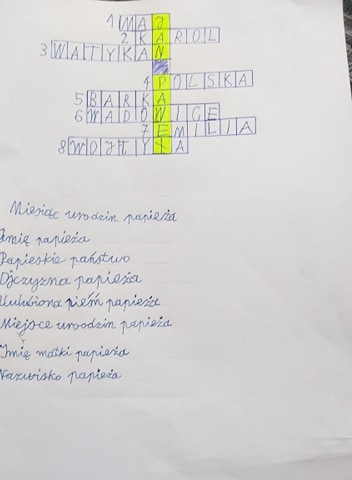 1 MAJ
2 KAROL
3 WATYKAN
4 POLSKA
5 BARKA
6 WADOWICE
7 EMILIA
8 WOJTYŁA
Miesiąc urodzin papieża
Imię papieża
Papieskie państwo
Ojczyzna papieża
Ulubiona pieśń papieża
Miejsce uroodzin papieża
Imię matki papieża
Nazwisko papieża